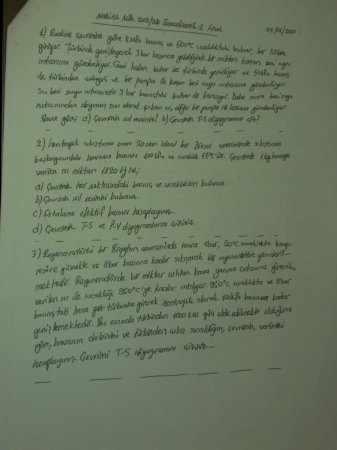 Makina Müh. Termodinamik-2 Final
1) Rankine çevrimine göre basınç ve sıcaklıkta buhar, bir türbine
giriyor. Türbinde genişleyerek 3 bar basınca geldiğinde bir miktarı besi suyu
ısıtıcısına gönderiliyor. Geri kalan buhar ise türbinde genişliyor ve basınç
ile türbinden çıkıyor ve bir pompa ile besi suyu ısıtıcısına gönderiliyor.
Su besi suyu ısıtıcısında 3 bar basınçtaki buhar ile karışıyor. Daha sonra besi suyu
ısıtıcısından doymuş sıvı olarak çıkan su, diğer bir pompa ile kazana gönderiliyor.
Buna göre; a) Çevrimin ısıl verimini? b) Çevrimin T-S diyagramını çiz?
2) İzentropik sıkıştırma oranı 20 olan ideal bir Dizel çevriminde sıkıştırma
başlangıcındaki havanın basıncı 100 kPa ve sıcaklık 17°C dir. Çevrimde 1 kg havaya
verilen ısı miktarı kJ ise;
a) Çevrimin her noktasındaki basınç ve sıcaklıkları bulunuz
b) Çevrimin ısıl verimini bulunuz
c) Ortalama efektif basıncı hesaplayınız
d) Çevrimin T-S ve P-V diyagramlarını çiziniz.
3) Regeneratörlü bir Brayton çevriminde hava 1 bar, 20°C sıcaklıkta komp-
resöre girmekte ve bar basınca kadar sıkıştırılıp regeneratöre gönderil-
mektedir. Regeneratörde bir miktar ısıtılan hava yanma odasına girerek,
verilen ısı ile sıcaklığı 850°C'ye kadar ısıtılıyor. 850°C sıcaklıkta ve bar
basınçtaki hava gaz türbinine girerek izentropik olarak basıncına kadar
genişlemektedir. Bu esnada türbinden kW güç elde edilmekte olduğuna
göre, havanın debisini ve türbinden çıkış sıcaklığını, çevrimin verimini
hesaplayınız. Çevrimi T-S diyagramını çiziniz.